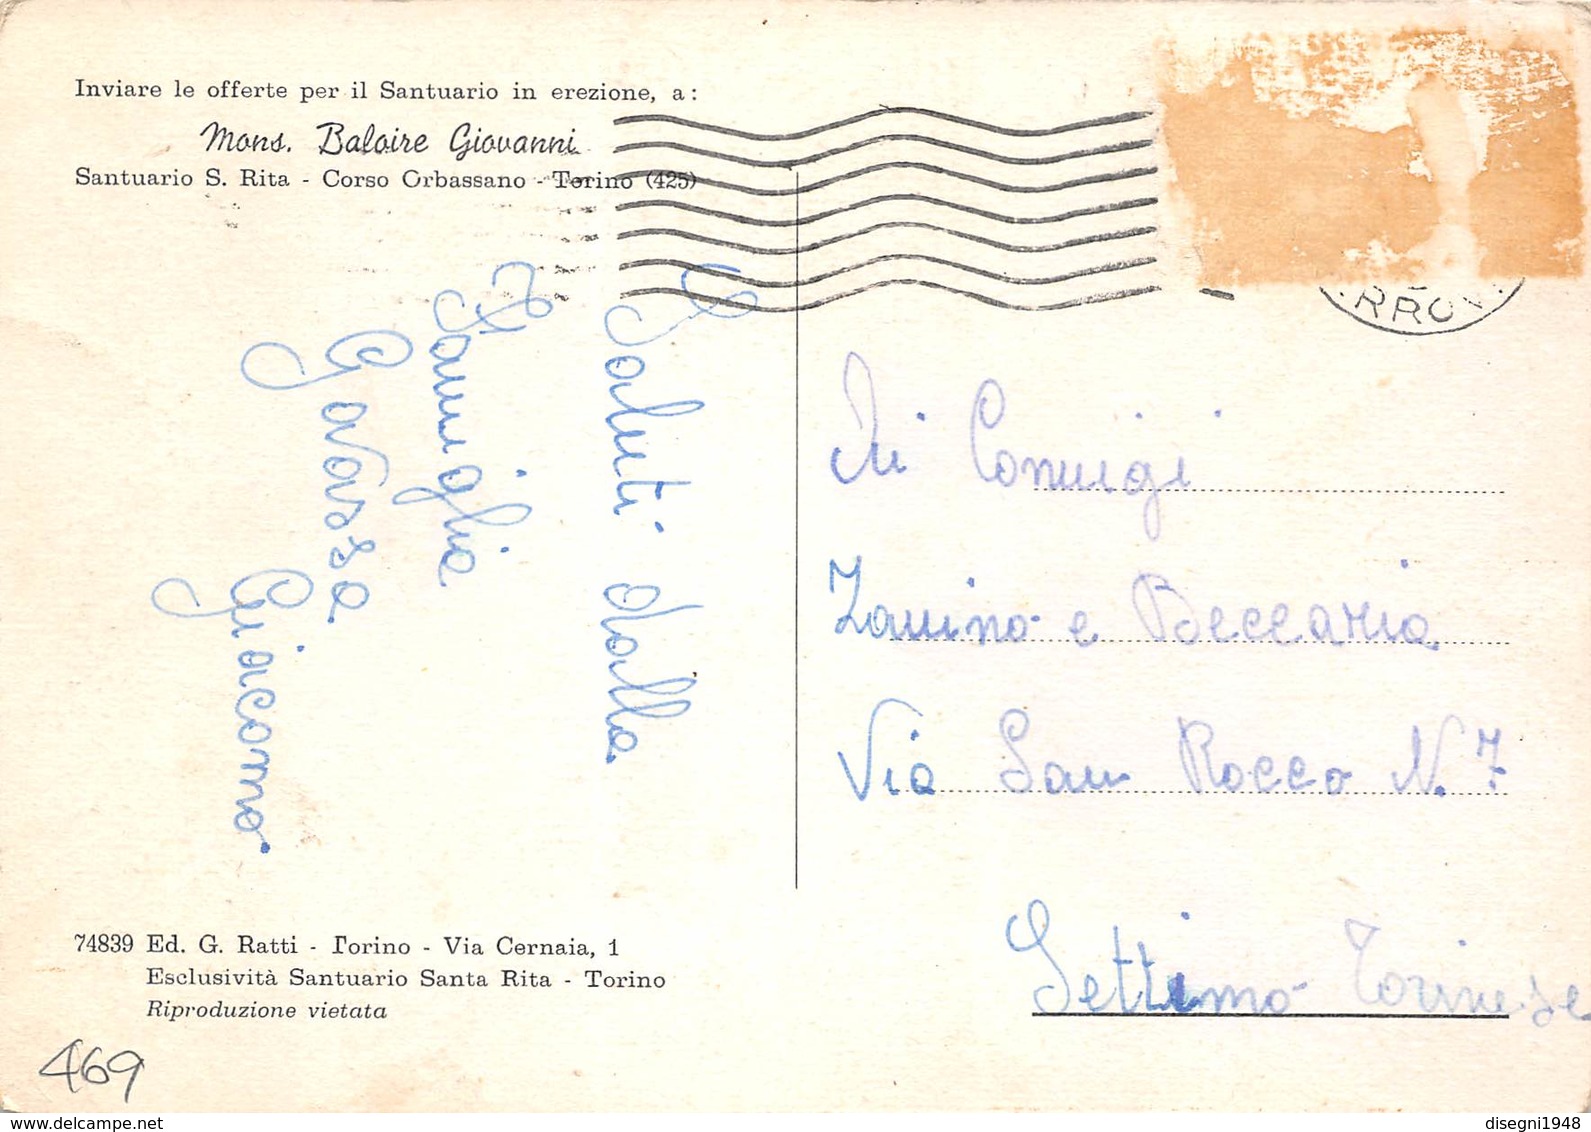 Inviare le offerte per il Santuario in erezione, a:
Mons. Baloire Giovanni
Santuario S. Rita - Corso Orbassano - Torino (425)
Saluti dalla
Famiglia
Gavossa
Giacomo
RROV.
Ai Coniugi
Zanino e Beccaria
Via San Rocco N. 7
Settimo Torinese
74839 Ed. G. Ratti - Torino - Via Cernaia, 1
Esclusività Santuario Santa Rita - Torino
Riproduzione vietata
469
delcampe.net
disegni1948